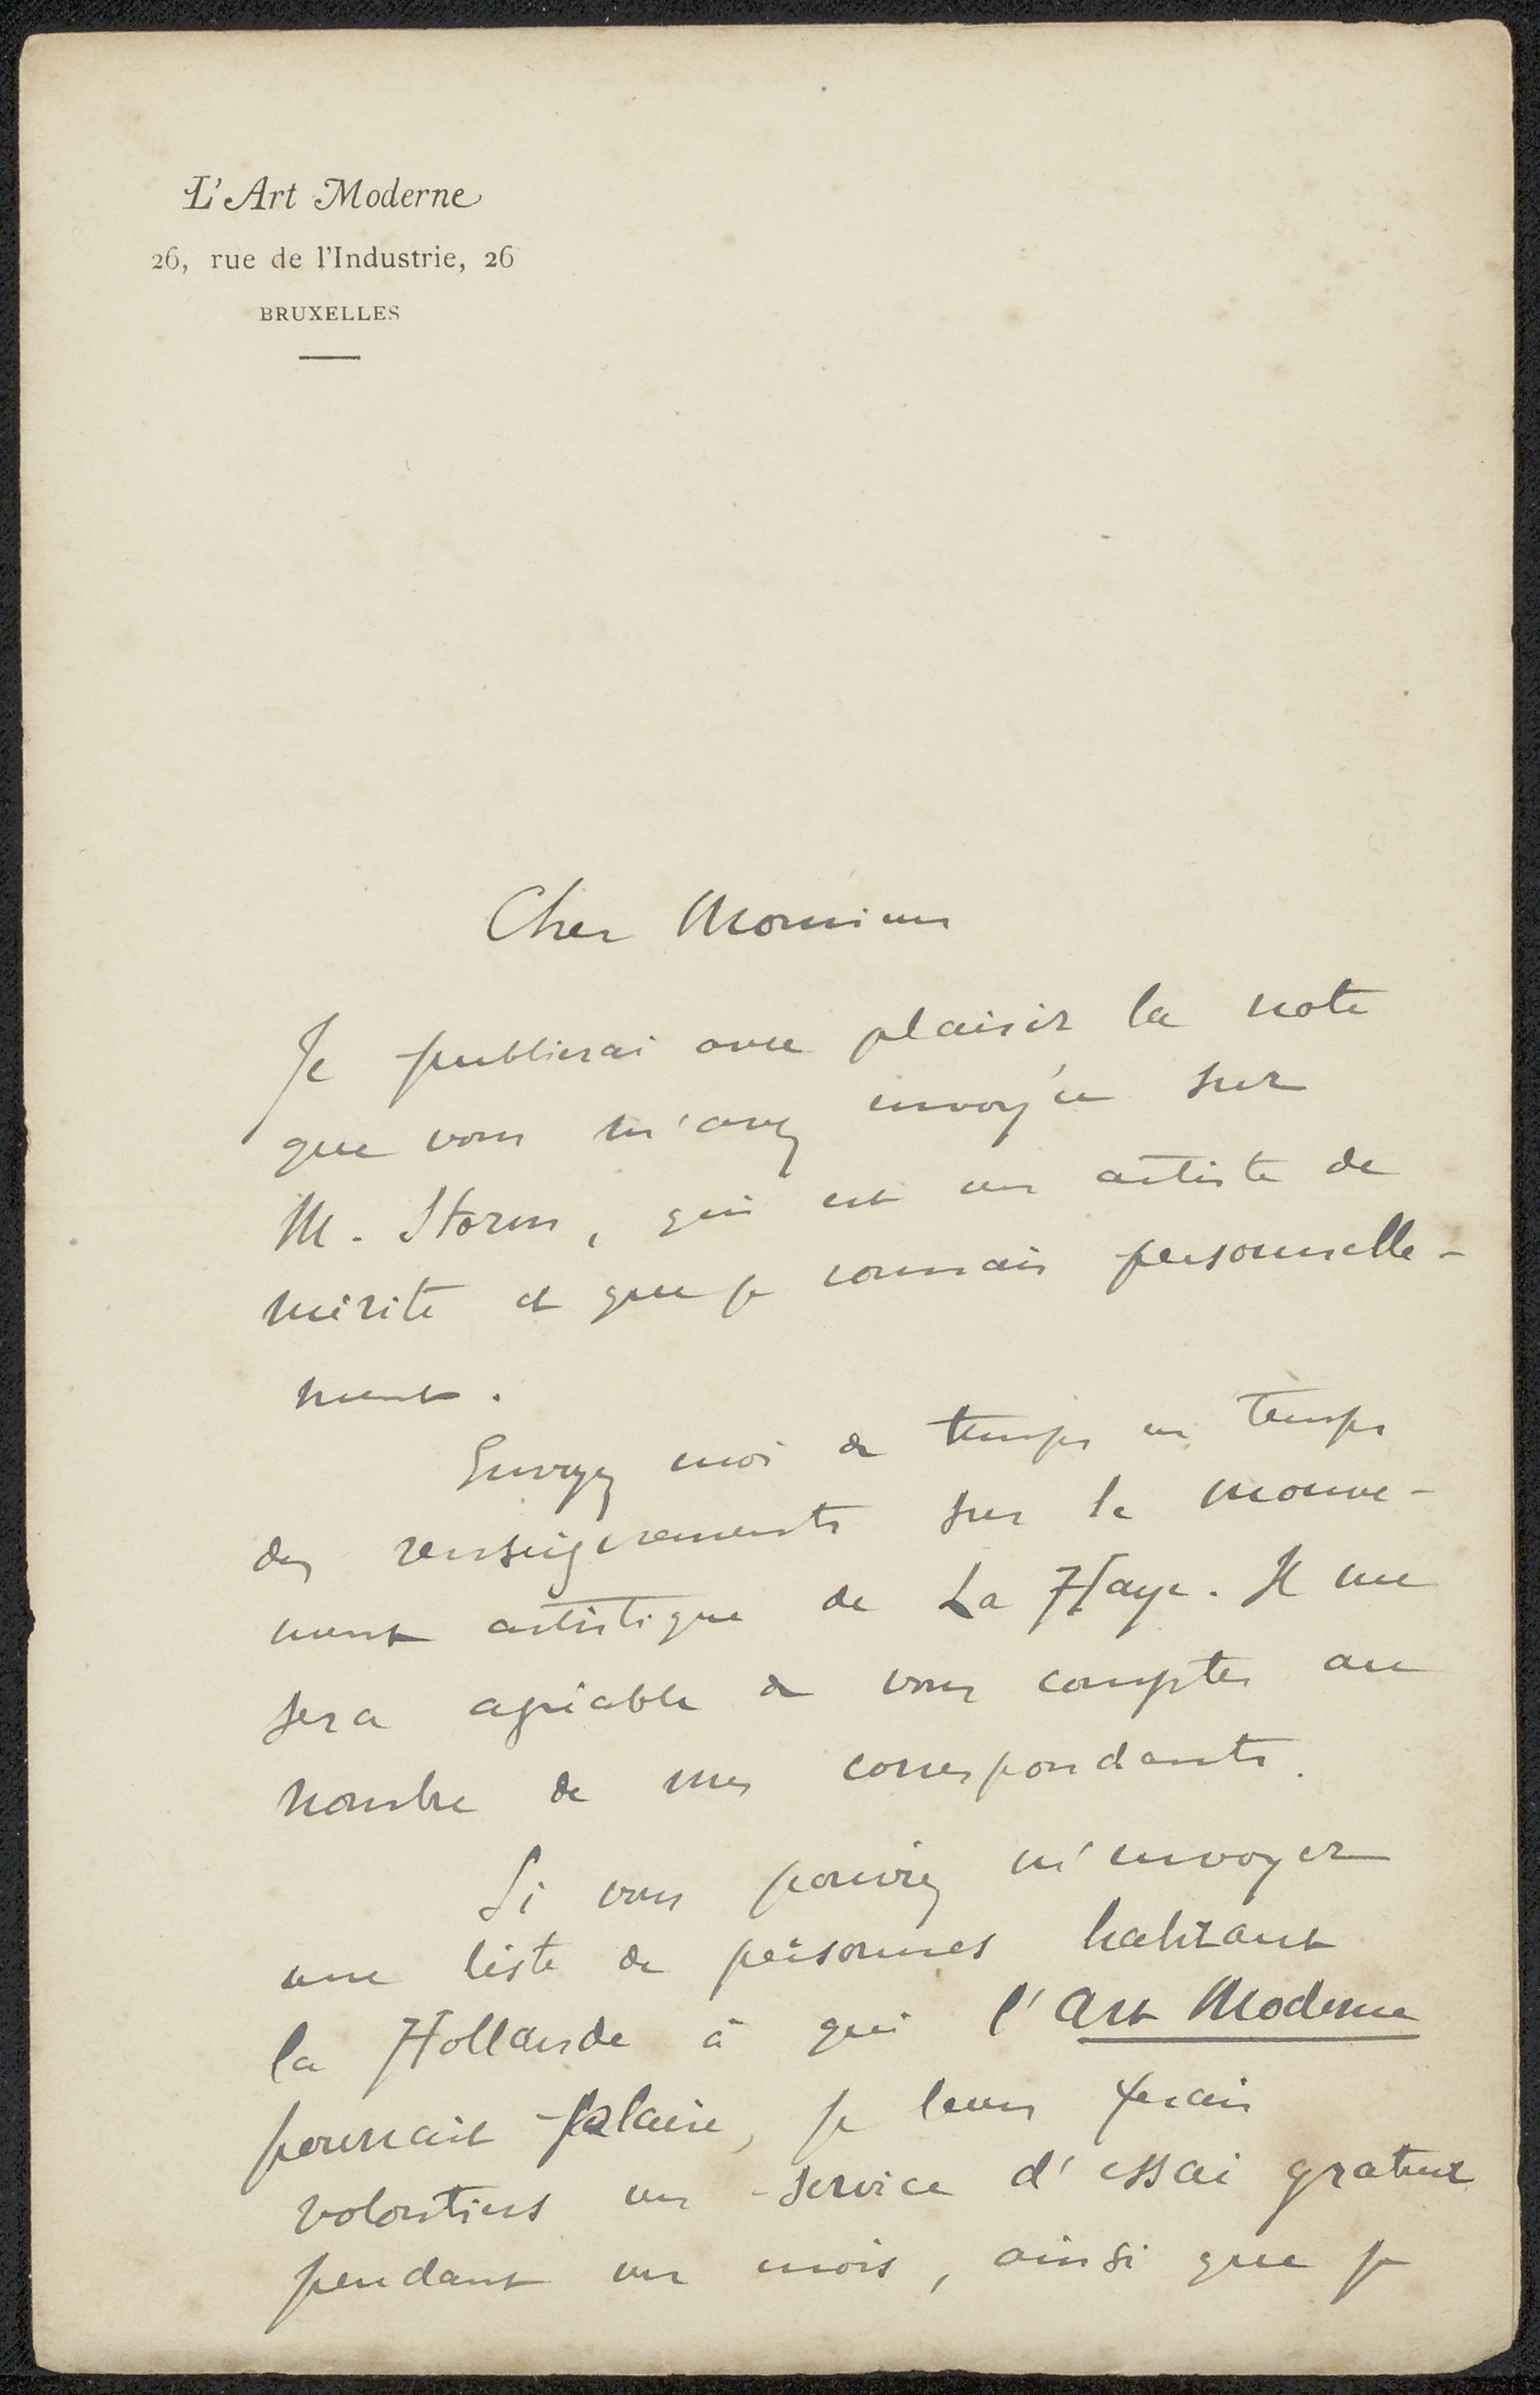 L'Art Moderne
26, rue de l'Industrie, 26
BRUXELLES
Cher Monsieur
Je publierai avec plaisir la note
que vous m'avez envoyée sur
M. Storm, qui est un artiste de
mérite et que je connais personnelle-
ment.
Envoyez moi de temps en temps
des renseignements sur le mouve-
ment artistique de La Haye. Il me
sera agréable de vous compter au
nombre de mes correspondants.
Si vous pouviez m'envoyer
une liste de personnes habitant
la Hollande à qui l'Art Moderne
pourrait plaire, je leur ferais
volontiers un service d'essai gratuit
pendant un mois, ainsi que je